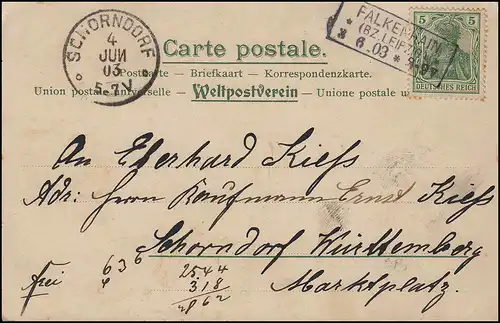 SCHORNDORF
4
JUN
03
5-7 N
FALKENHAIN
(BZ. LEIPZIG)
* 3 6.03 *
5 5
DEUTSCHES REICH
Carte postale.
Postkarte — Briefkaart — Korrespondenzkarte.
Union postale universelle — Weltpostverein — Unione postale
An Eberhard Kiess
Adr: Herrn Kaufmann Ernst Kiess
Schorndorf Württemberg
Marktplatz.
frei
636
2544
318